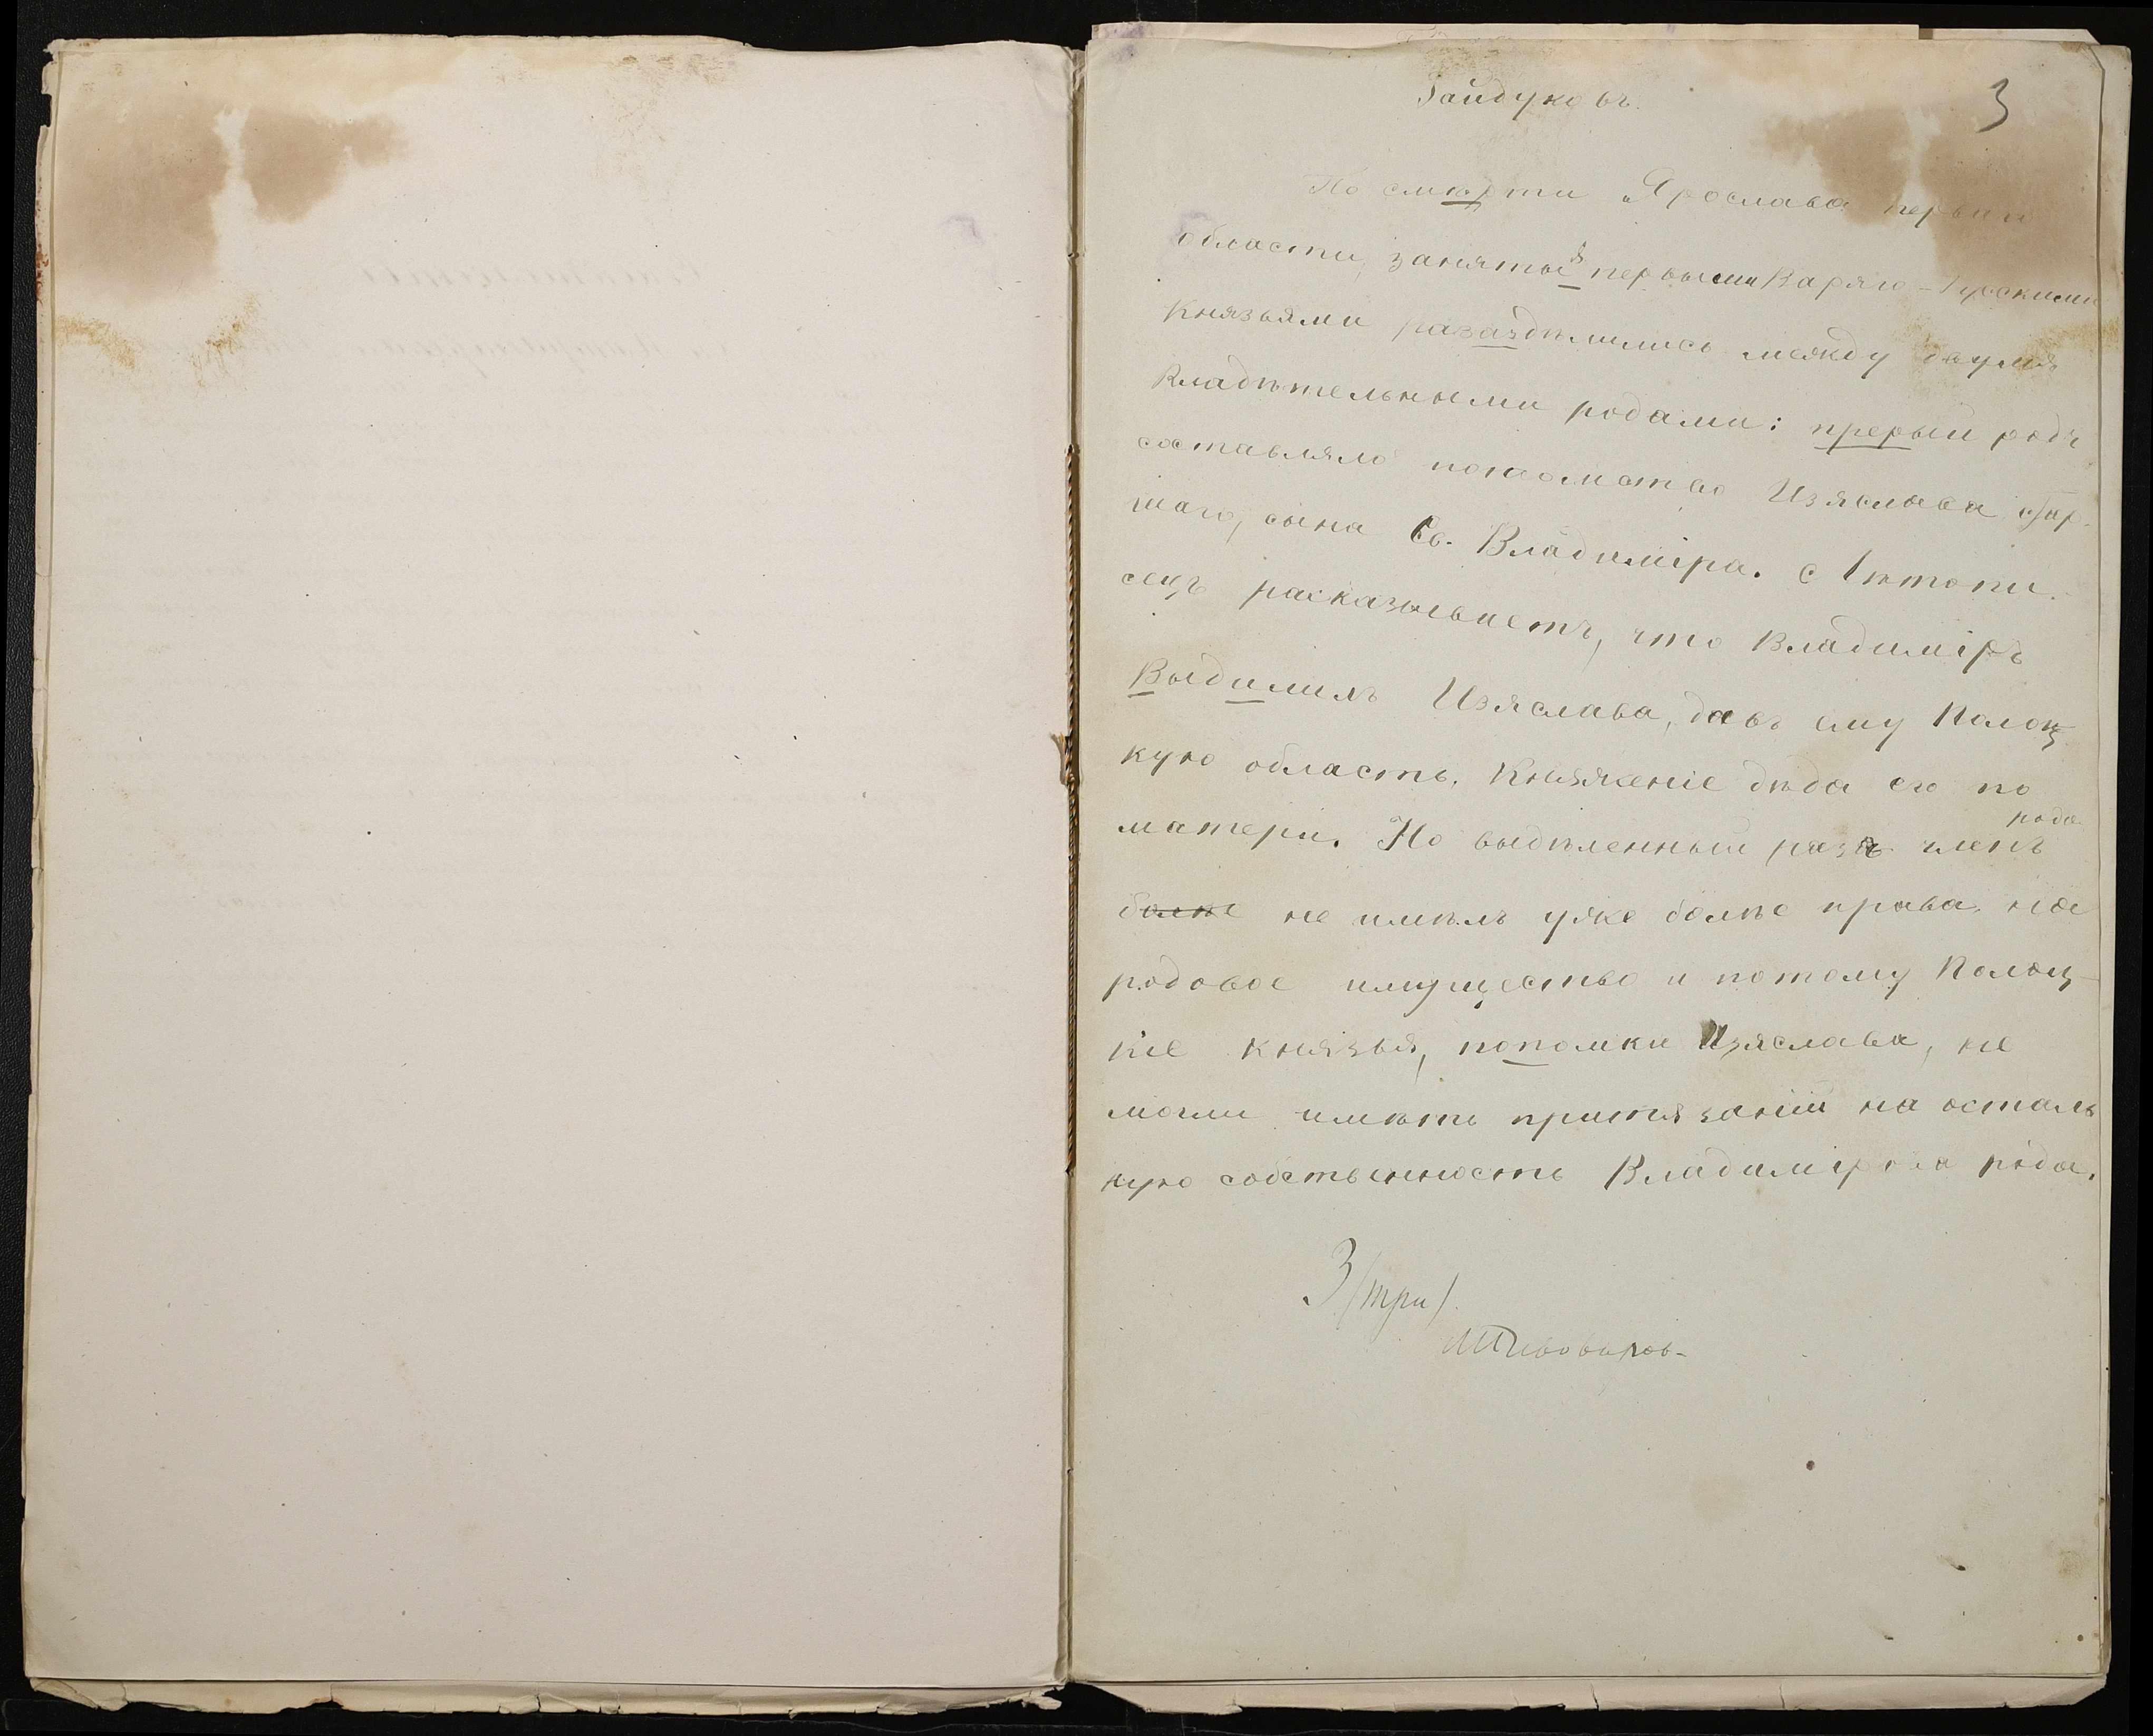 Гайдуковъ.
3
По смѣрти Ярослава первыи
области, занятыя первыми Варяго-Русскими
Князьями разаздѣлились между двумя
Владѣтельными родами: прервый родъ
составляло потомство Изяслава стар-
шаго, сына Св. Владиміра. Лѣтопи-
сецъ расказываетъ, что Владиміръ
Выдилилъ Изяслава, давъ ему Полоц
кую область, Княженіе дѣда его по
матери. Но выдѣленный разъ членъ
рода
болѣе не имѣлъ уже болѣе права на
родовое имущество и потому Полоц-
кіе князья, потомки Изяслава, не
могли имѣть притязаній на осталь
ную собственность Владимірова рода.
3/три/.